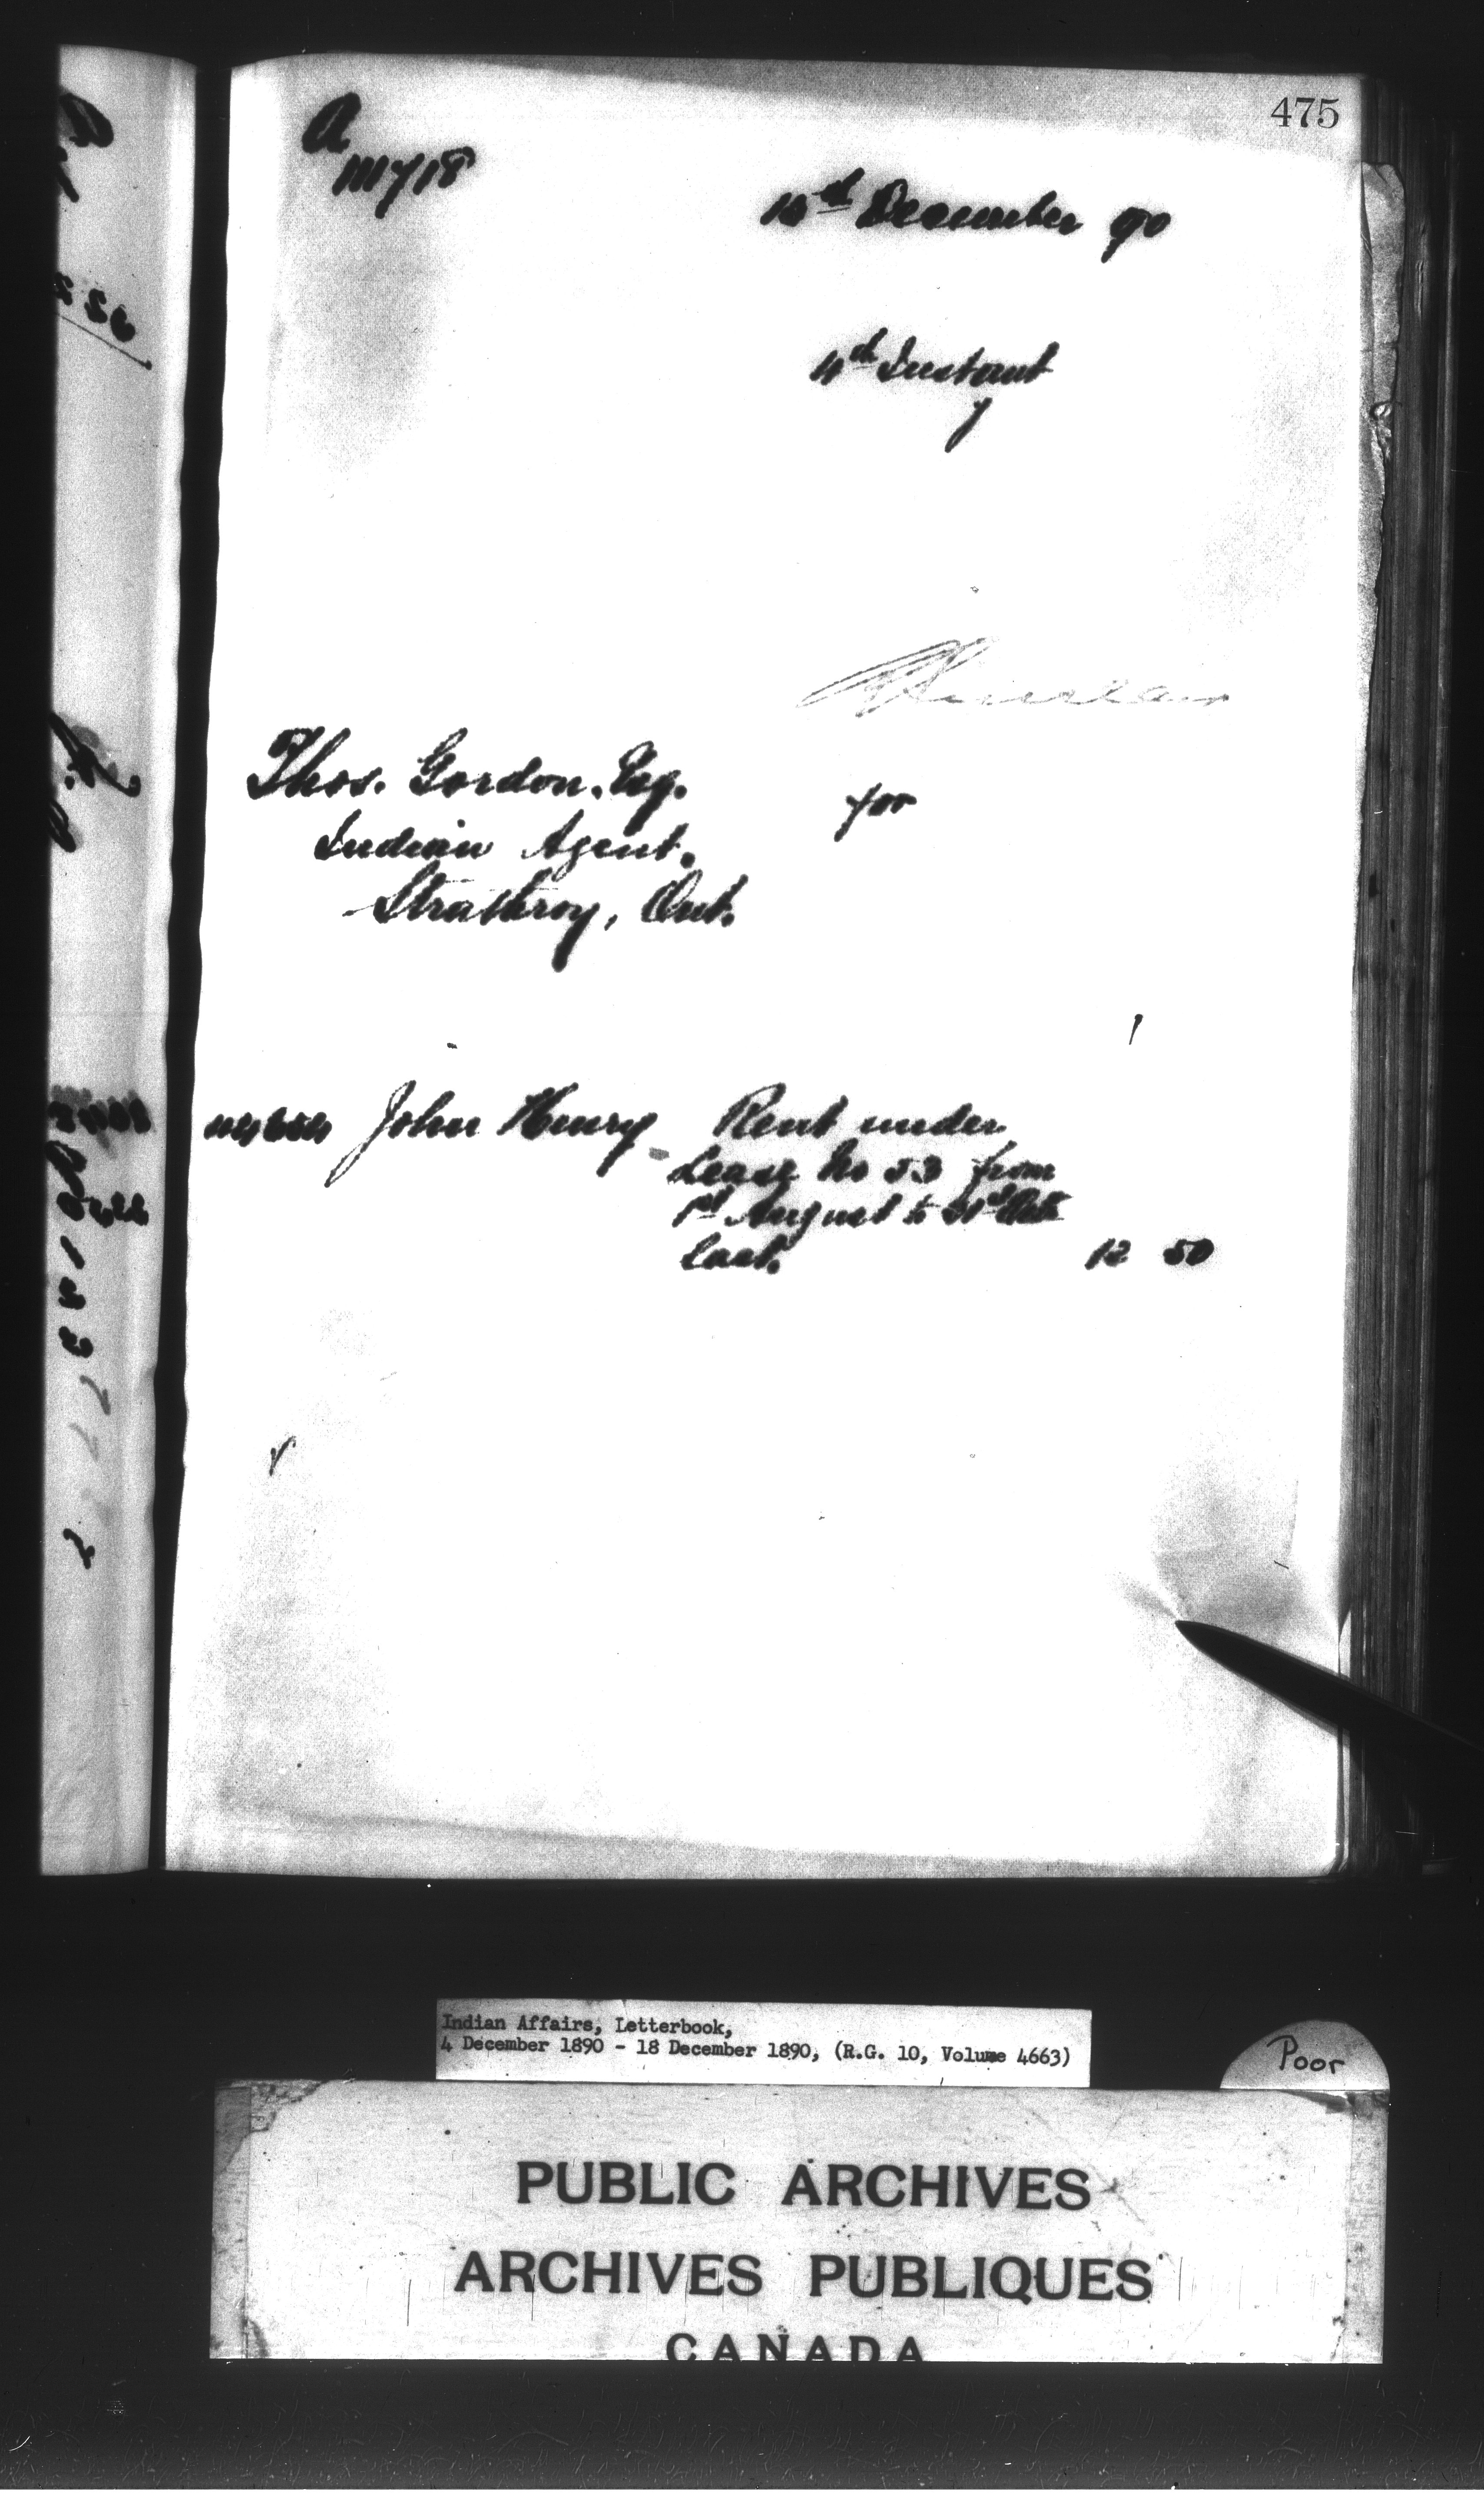 475
A
111718
December 90
4th Instant
Thos. Gordon. Esq.
for
Indian Agent.
Strathroy, Ont.
John Henry Rent under
Lease No 53 from
1st August to 31st Oct.
last. 12 50
Indian Affairs, Letterbook,
4 December 1890 - 18 December 1890, (R.G. 10, Volume 4663)
Poor
PUBLIC ARCHIVES
ARCHIVES PUBLIQUES
CANADA